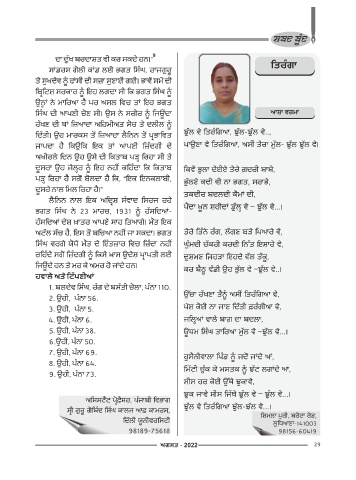 ਸ਼ਬਦ ਬੂੰਦ
ਦਾ ਦੁੱਖ ਬਰਦਾਸ਼ਤ ਵੀ ਕਰ ਸਕਦੇ ਹਨ।"9
ਸਾਂਡਰਸ ਗੋਲੀ ਕਾਂਡ ਲਈ ਭਗਤ ਸਿੰਘ, ਰਾਜਗੁਰੂ
ਤੇ ਸੁਖਦੇਵ ਨੂੰ ਫਾਂਸੀ ਦੀ ਸਜ਼ਾ ਸੁਣਾਈ ਗਈ। ਭਾਵੇਂ ਸਮੇਂ ਦੀ
ਬ੍ਰਿਟਿਸ਼ ਸਰਕਾਰ ਨੂੰ ਇਹ ਲਗਦਾ ਸੀ ਕਿ ਭਗਤ ਸਿੰਘ ਨੂੰ
ਉਨ੍ਹਾਂ ਨੇ ਮਾਰਿਆ ਹੈ ਪਰ ਅਸਲ ਵਿਚ ਤਾਂ ਇਹ ਭਗਤ
ਸਿੰਘ ਦੀ ਆਪਣੀ ਚੋਣ ਸੀ। ਉਸ ਨੇ ਸਰੀਰ ਨੂੰ ਜਿਉਂਦਾ
ਰੱਖਣ ਦੀ ਥਾਂ ਜ਼ਿਆਦਾ ਅਹਿਮੀਅਤ ਸੋਚ ਤੇ ਦਲੀਲ ਨੂੰ
ਦਿੱਤੀ। ਉਹ ਮਾਰਕਸ ਤੋਂ ਜ਼ਿਆਦਾ ਲੈਨਿਨ ਤੋਂ ਪ੍ਰਭਾਵਿਤ
ਜਾਪਦਾ ਹੈ ਕਿਉਂਕਿ ਇਕ ਤਾਂ ਆਪਣੀ ਜ਼ਿੰਦਗੀ ਦੇ
ਅਖੀਰਲੇ ਦਿਨ ਉਹ ਉਸੇ ਦੀ ਕਿਤਾਬ ਪੜ੍ਹ ਰਿਹਾ ਸੀ ਤੇ
ਦੂਸਰਾ ਉਹ ਜੇਲ੍ਹਰ ਨੂੰ ਇਹ ਨਹੀਂ ਕਹਿੰਦਾ ਕਿ ਕਿਤਾਬ
ਪੜ੍ਹ ਰਿਹਾ ਹੈ ਸਗੋਂ ਬੋਲਦਾ ਹੈ ਕਿ, "ਇਕ ਇਨਕਲਾਬੀ,
ਦੂਸਰੇ ਨਾਲ ਮਿਲ ਰਿਹਾ ਹੈ।"
ਲੈਨਿਨ ਨਾਲ ਇਕ ਅਦ੍ਰਿਸ਼ ਸੰਵਾਦ ਸਿਰਜ ਰਹੇ
ਭਗਤ ਸਿੰਘ ਨੇ 23 ਮਾਰਚ, 1931 ਨੂੰ ਹੱਸਦਿਆਂ-
ਹੱਸਦਿਆਂ ਦੇਸ਼ ਖ਼ਾਤਰ ਆਪਣੇ ਸਾਹ ਤਿਆਗੇ। ਮੌਤ ਇਕ
ਅਟੱਲ ਸੱਚ ਹੈ, ਇਸ ਤੋਂ ਬਚਿਆ ਨਹੀਂ ਜਾ ਸਕਦਾ। ਭਗਤ
ਸਿੰਘ ਵਰਗੇ ਯੋਧੇ ਮੌਤ ਦੇ ਇੰਤਜ਼ਾਰ ਵਿਚ ਜ਼ਿੰਦਾ ਨਹੀਂ
ਰਹਿੰਦੇ ਸਗੋਂ ਜ਼ਿੰਦਗੀ ਨੂੰ ਕਿਸੇ ਖ਼ਾਸ ਉਦੇਸ਼ ਪ੍ਰਾਪਤੀ ਲਈ
ਜਿਉਂਦੇ ਹਨ ਤੇ ਮਰ ਕੇ ਅਮਰ ਹੋ ਜਾਂਦੇ ਹਨ।
ਹਵਾਲੇ ਅਤੇ ਟਿੱਪਣੀਆਂ
1. ਬਲਦੇਵ ਸਿੰਘ, ਰੰਗ ਦੇ ਬਸੰਤੀ ਚੋਲਾ, ਪੰਨਾ 110.
2. ਉਹੀ, ਪੰਨਾ 56.
3. ਉਹੀ, ਪੰਨਾ 5.
4. ਉਹੀ, ਪੰਨਾ 6.
5. ਉਹੀ, ਪੰਨਾ 38.
6.ਉਹੀ, ਪੰਨਾ 50.
7. ਉਹੀ, ਪੰਨਾ 69.
8. ਉਹੀ, ਪੰਨਾ 64.
9. ਉਹੀ, ਪੰਨਾ 73.
ਅਸਿਸਟੈਂਟ ਪ੍ਰੋਫੈਸਰ, ਪੰਜਾਬੀ ਵਿਭਾਗ
ਸ੍ਰੀ ਗੁਰੂ ਗੋਬਿੰਦ ਸਿੰਘ ਕਾਲਜ ਆਫ਼ ਕਾਮਰਸ,
ਦਿੱਲੀ ਯੂਨੀਵਰਸਿਟੀ
98189-75618
ਤਿਰੰਗਾ
ਆਸ਼ਾ ਵਰਮਾ
ਝੁੱਲ ਵੇ ਤਿਰੰਗਿਆ, ਝੁੱਲ-ਝੁੱਲ ਵੇ...
ਪਾਉਣਾ ਵੇ ਤਿਰੰਗਿਆ, ਅਸੀਂ ਤੇਰਾ ਮੁੱਲ- ਝੁੱਲ ਝੁੱਲ ਵੇ।
ਕਿਵੇਂ ਭੁਲਾ ਦੇਈਏ ਤੇਰੇ ਗਦਰੀ ਬਾਬੇ,
ਭੁੱਲਣੇ ਕਦੀ ਵੀ ਨਾ ਭਗਤ, ਸਰਾਭੇ,
ਤਕਦੀਰ ਬਦਲਦੀ ਕੌਮਾਂ ਦੀ,
ਪੈਂਦਾ ਖੂਨ ਸ਼ਹੀਦਾਂ ਡੁੱਲ੍ਹ ਵੇ – ਝੁੱਲ ਵੇ...।
ਤੇਰੇ ਤਿੰਨ ਰੰਗ, ਲੱਗਣ ਬੜੇ ਪਿਆਰੇ ਵੇ,
ਘੁੰਮਦੀ ਚੱਕਰੀ ਕਰਦੀ ਨਿੱਤ ਇਸ਼ਾਰੇ ਵੇ,
ਦੁਸ਼ਮਣ ਜਿਹੜਾ ਇਹਦੇ ਵੱਲ ਤੱਕੂ,
ਕਰ ਬੈਠੂ ਵੱਡੀ ਉਹ ਭੁੱਲ ਵੇ –ਝੁੱਲ ਵੇ..।
ਉੱਚਾ ਰੱਖਣਾ ਤੈਨੂੰ ਅਸੀਂ ਤਿਰੰਗਿਆ ਵੇ,
ਪੇਸ਼ ਕੋਈ ਨਾ ਜਾਣ ਦਿੱਤੀ ਫ਼ਰੰਗੀਆ ਵੇ,
ਜਲ੍ਹਿਆਂ ਵਾਲੇ ਬਾਗ਼ ਦਾ ਬਦਲਾ,
ਊਧਮ ਸਿੰਘ ਤਾਰਿਆ ਮੁੱਲ ਵੇ –ਝੁੱਲ ਵੇ...।
ਹੁਸੈਨੀਵਾਲਾ ਪਿੰਡ ਨੂੰ ਜਦੋਂ ਜਾਂਦੇ ਆਂ,
ਮਿੱਟੀ ਚੁੱਕ ਕੇ ਮਸਤਕ ਨੂੰ ਝੱਟ ਲਗਾਂਦੇ ਆਂ,
ਸੀਸ ਹਰ ਕੋਈ ਉੱਥੇ ਝੁਕਾਵੇ,
ਝੁਕ ਜਾਵੇ ਸੀਸ ਜਿੱਥੇ ਝੁੱਲ ਵੇ – ਝੁੱਲ ਵੇ...।
ਝੁੱਲ ਵੇ ਤਿਰੰਗਿਆ ਝੁੱਲ-ਝੁੱਲ ਵੇ...।
ਸ਼ਿਮਲਾ ਪੁਰੀ, ਬਰੋਟਾ ਰੋਡ,
ਲੁਧਿਆਣਾ-141003
98156-60419
ਅਗਸਤ - 2022
29